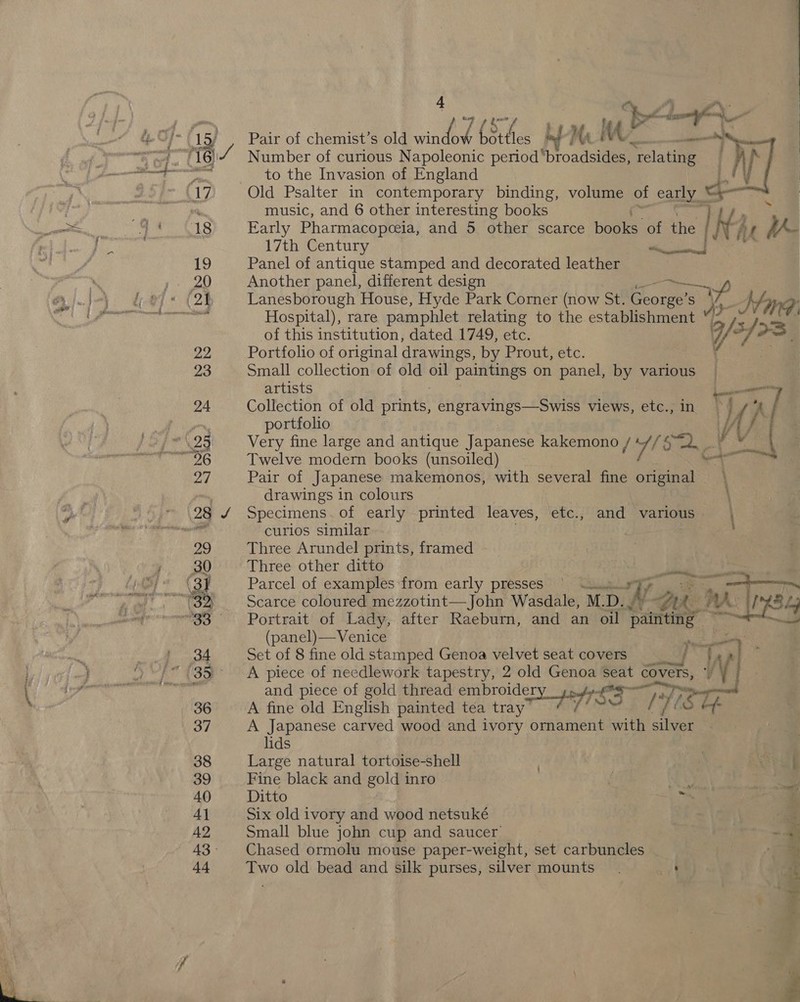 4
15 Pair of chemist's old window bottles
16 Number of curious Napoleonic period broadsides, relating
to the Invasion of England
17 Old Psalter in contemporary binding, volume of early
music, and 6 other interesting books
18 Early Pharmacopœia, and 5 other scarce books of the
17th Century
19 Panel of antique stamped and decorated leather
20 Another panel, different design
21 Lanesborough House, Hyde Park Corner (now St. George's
Hospital), rare pamphlet relating to the establishment
of this institution, dated 1749, etc.
22 Portfolio of original drawings, by Prout, etc.
23 Small collection of old oil paintings on panel, by various
artists
24 Collection of old prints, engravings—Swiss views, etc., in
portfolio
25 Very fine large and antique Japanese kakemono
26 Twelve modern books (unsoiled)
27 Pair of Japanese makemonos, with several fine original
drawings in colours
28 Specimens of early printed leaves, etc., and various
curios similar
29 Three Arundel prints, framed
30 Three other ditto
31 Parcel of examples from early presses
32 Scarce coloured mezzotint—John Wasdale, M.D.
33 Portrait of Lady, after Raeburn, and an oil painting
(panel)—Venice
34 Set of 8 fine old stamped Genoa velvet seat covers
35 A piece of needlework tapestry, 2 old Genoa seat covers,
and piece of gold thread embroidery
36 A fine old English painted tea tray
37 A Japanese carved wood and ivory ornament with silver
lids
38 Large natural tortoise-shell
39 Fine black and gold inro
40 Ditto
41 Six old ivory and wood netsuké
42 Small blue john cup and saucer
43 Chased ormolu mouse paper-weight, set carbuncles
44 Two old bead and silk purses, silver mounts